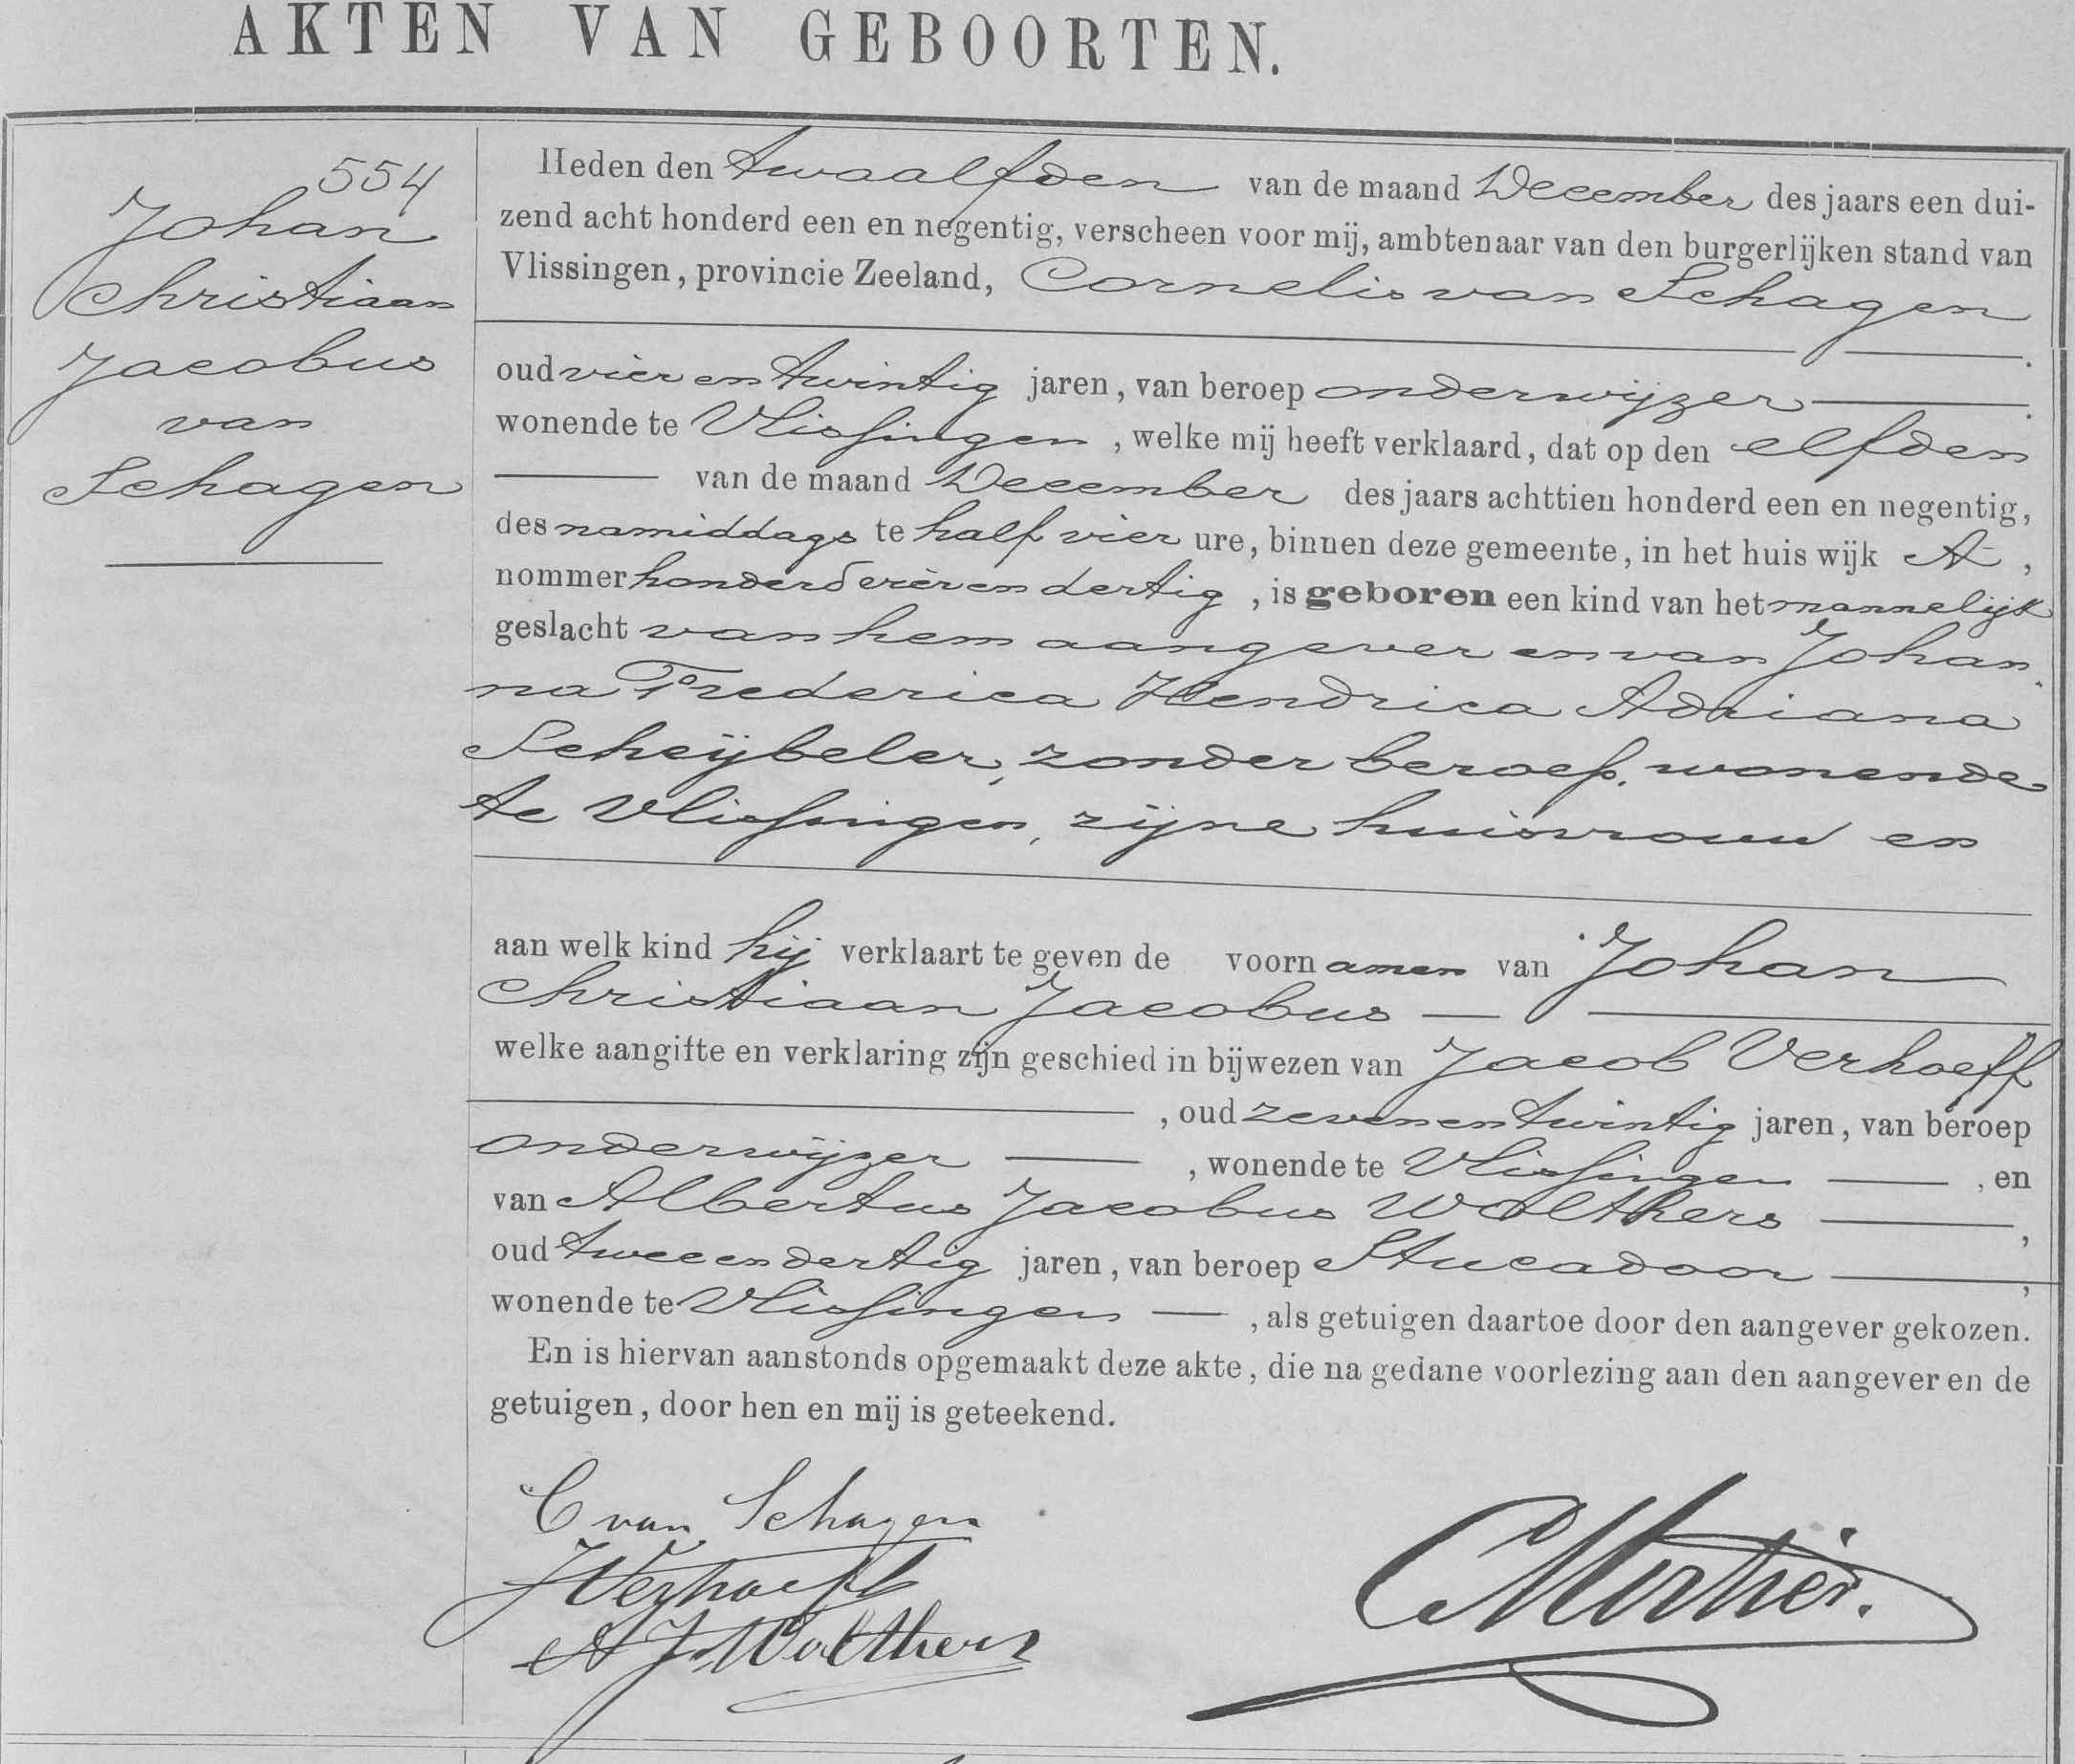 AKTEN VAN GEBOORTEN.
554
Johan
Christiaan
Jacobus
van
Schagen
Heden den twaalfden van de maand December des jaars een dui-
zend acht honderd een en negentig, verscheen voor mij, ambtenaar van den burgerlijken stand van
Vlissingen, provincie Zeeland, Cornelis van Schagen
oud vier en twintig jaren, van beroep onderwijzer
wonende te Vlissingen, welke mij heeft verklaard, dat op den elfden
van de maand December des jaars achttien honderd een en negentig,
des namiddags te half vier ure, binnen deze gemeente, in het huis wijk A,
nommer honderd en dertig, is geboren een kind van het mannelijk
geslacht van hem aangever en van Johan
na Frederica Hendrica Adriana
Scheijbeler, zonder beroep, wonende
te Vlissingen, zijne huisvrouw en
aan welk kind hij verklaart te geven de voornamen van Johan
Christiaan Jacobus
welke aangifte en verklaring zijn geschied in bijwezen van Jacob Verhoeff
, oud zeven en twintig jaren, van beroep
onderwijzer, wonende te Vlissingen, en
van Albertus Jacobus Wolthers,
oud twee en dertig jaren, van beroep Stucadoor,
wonende te Vlissingen, als getuigen daartoe door den aangever gekozen.
En is hiervan aanstonds opgemaakt deze akte, die na gedane voorlezing aan den aangever en de
getuigen, door hen en mij is geteekend.
C van Schagen
J Verhoeff
A J Wolthers
C Mortier.